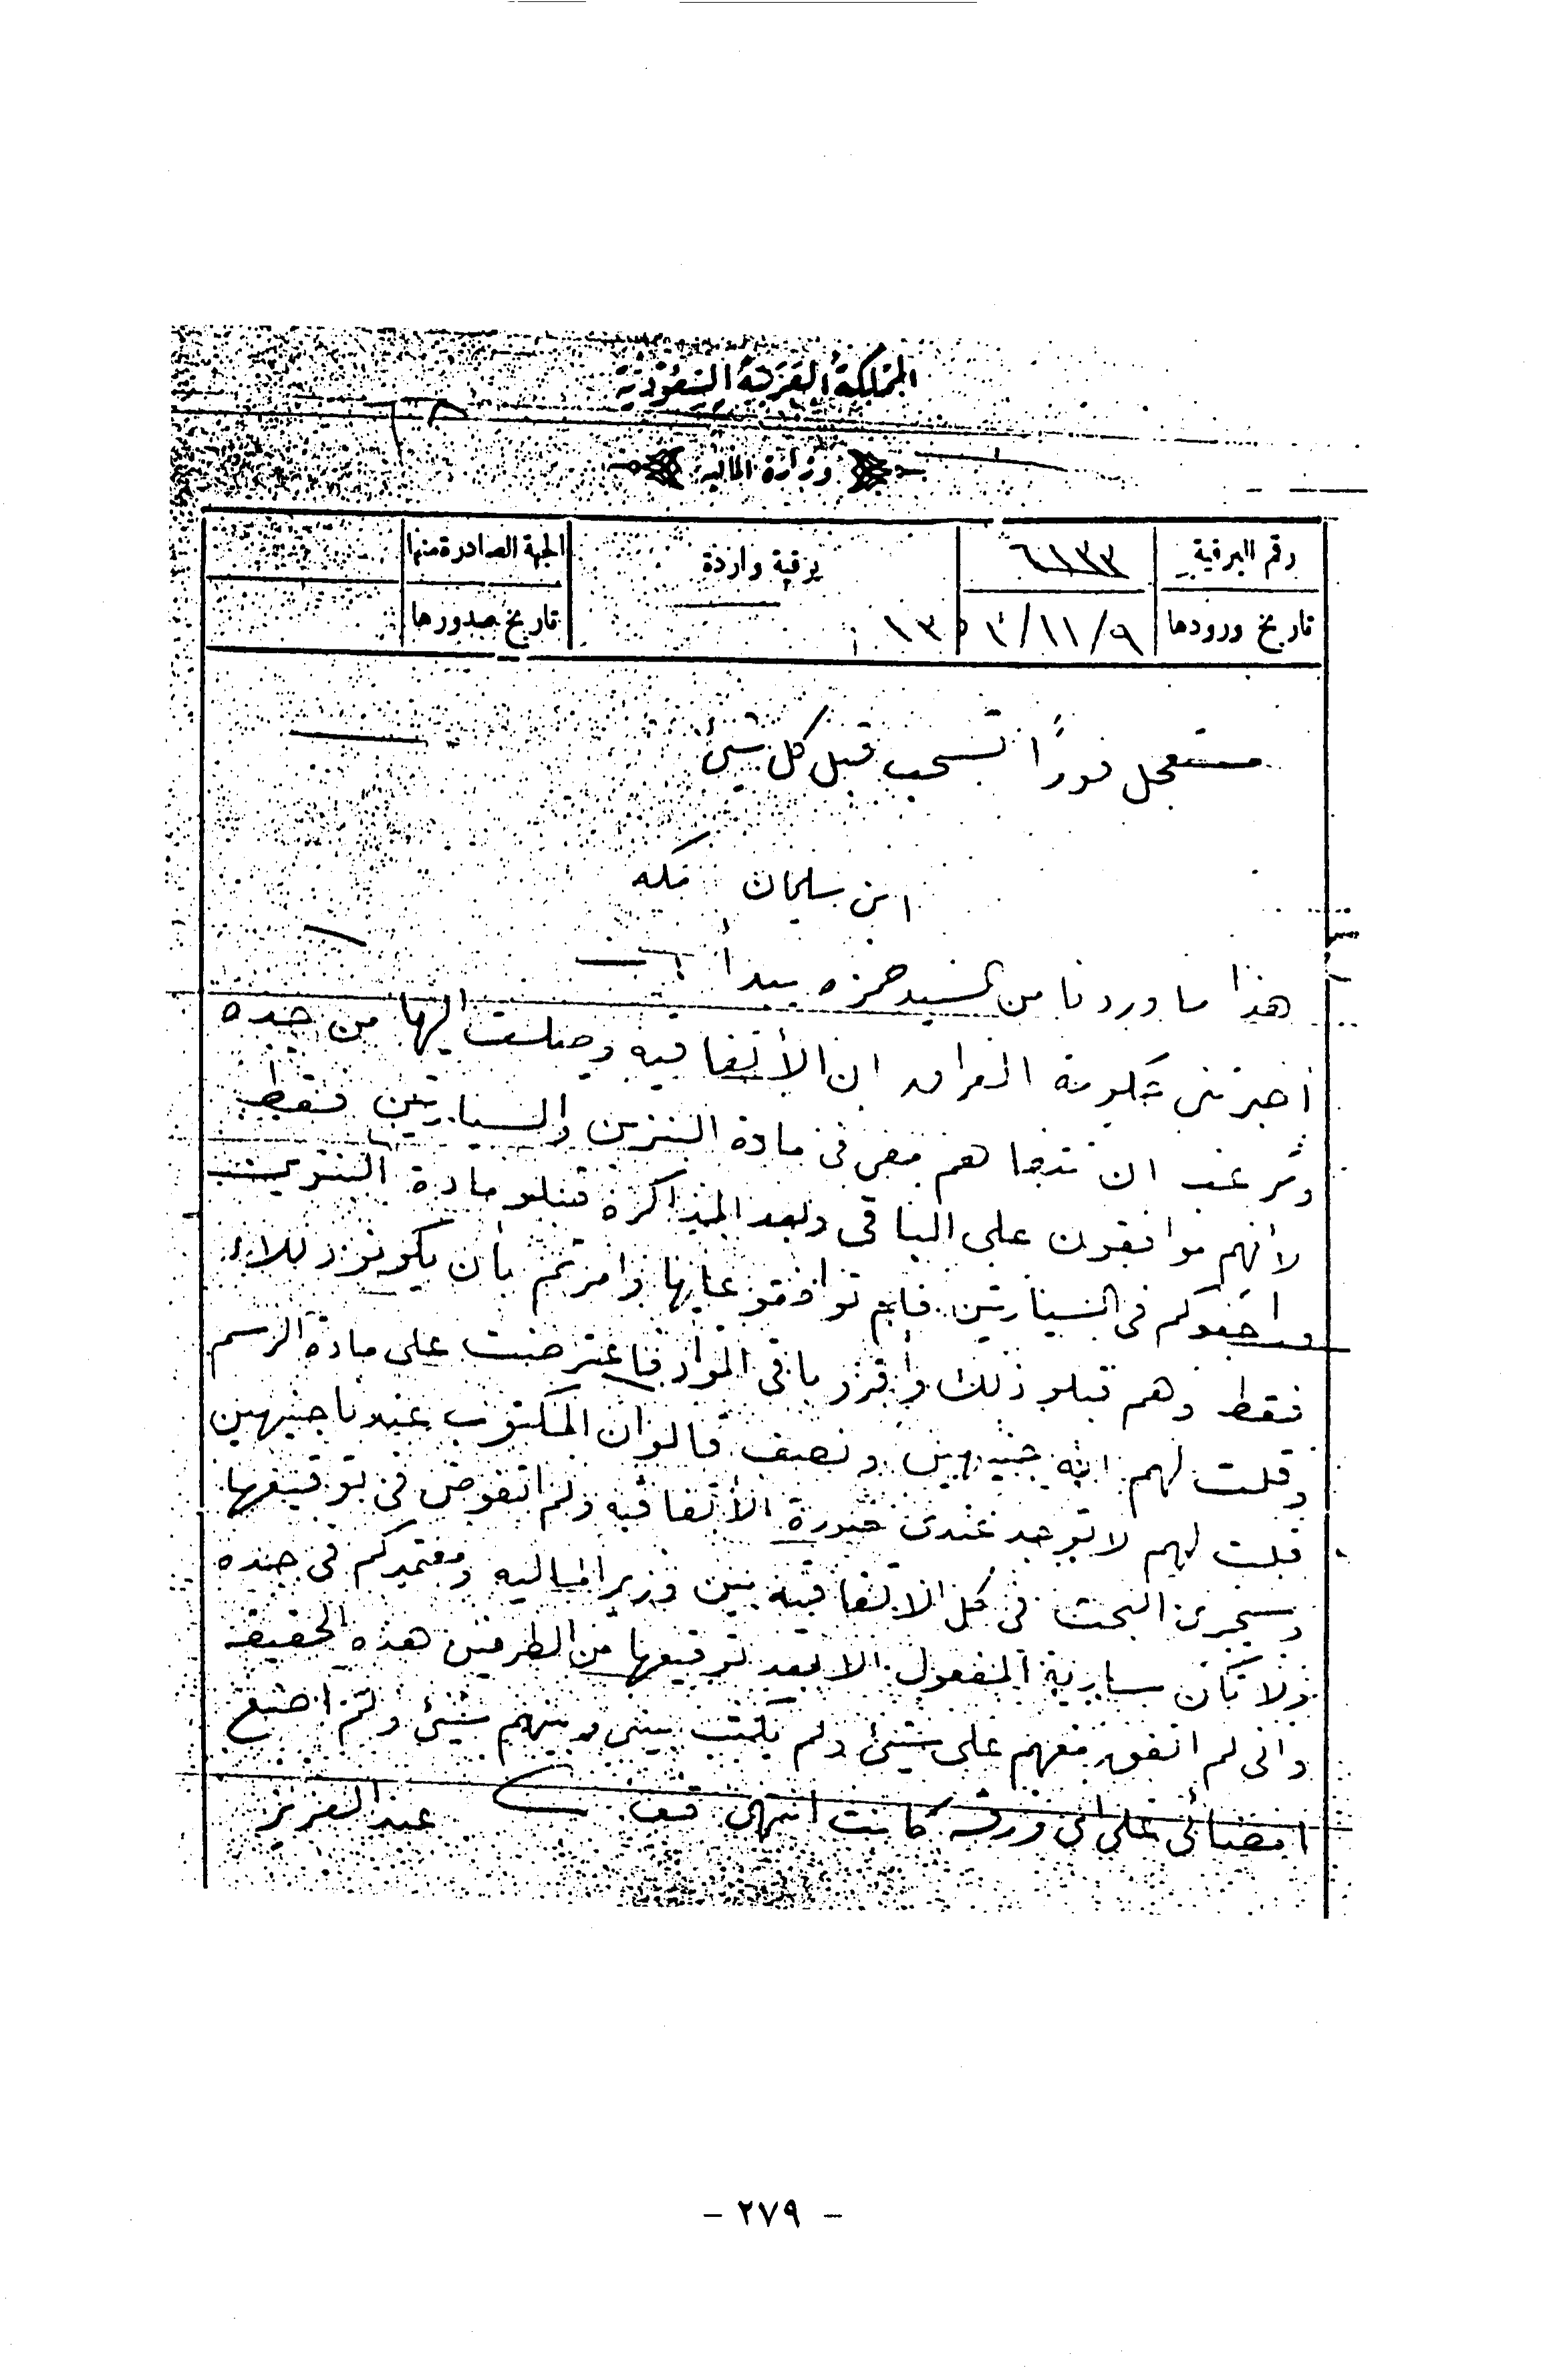 المملكة العربية السعودية
وزارة المالية
رقم البرقية ٦١٣٣ برقية واردة الجهة الصادرة منها
تاريخ ورودها ٩/١١/ ١٣ تاريخ صدورها
مستعجل فوراً تسحب قبل كل شئ
ابن سليمان مكه
هذا ما وردنا من السيد حمزه يبدأ
أخبرتني حكومة العراق ان الأتفاقيه وصلت اليها من جده
وترغب ان تتفاهم معي في مادة البنزين والسيارتين فقط
لأنهم موافقون على الباقي وبعد المذاكرة قبلو مادة البنزين
في السيارتين فلم توافقو عليها وامرتم بأن يكونو
فقط وهم قبلو ذلك وأقرو باقي المواد فاعترضت على مادة الرسم
وقلت لهم انه جنيهين ونصف قالو ان المكتوب عندنا جنيهين
قلت لهم لا توجد عندي صورة الأتفاقيه ولم اتفوض في توقيعها
وسيجري البحث في كل الاتفاقية بين وزير الماليه ومعتمدكم في جده
ولا تكن سارية المفعول الا بعد توقيعها من الطرفين هذه الحقيقه
واني لم اتفق معهم على شئ ولم يكتب بيني وبينهم شئ ولم اضع
امضائي على اي ورقه كانت انتهى قف عبد العزيز
- ٢٧٩ -